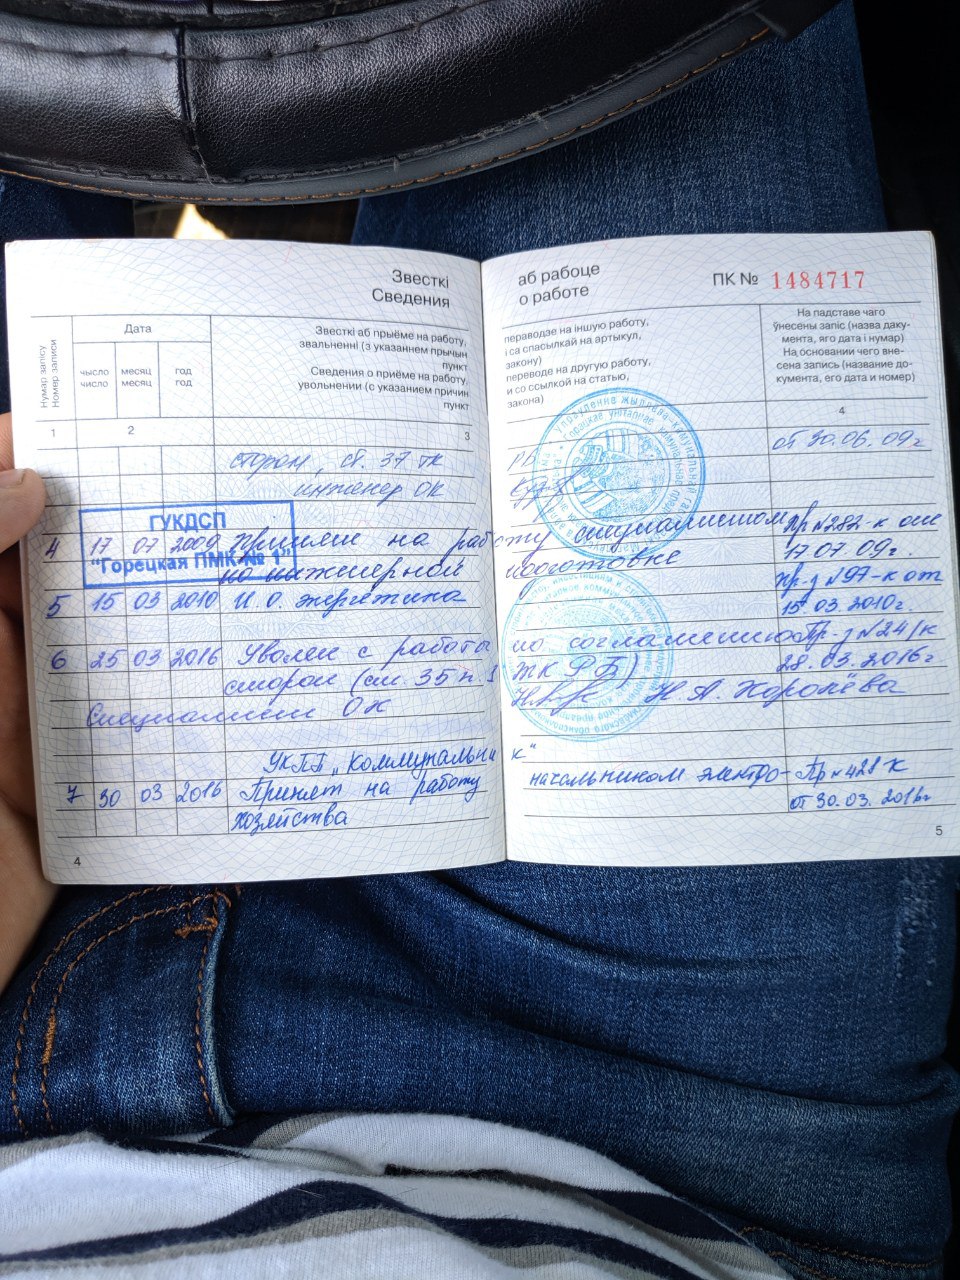 Звесткі
Сведения
Нумар запісу
Номер записи
Дата
чысло
число
месяц
месяц
год
год
Звесткі аб прыёме на работу,
звальненні (з указаннем прычын
пункт
Сведения о приёме на работу
увольнении (с указанием причин
пункт
1 2 3
сторон, ст. 37 ТК
инженер ОК
ГУКДСП
"Горецкая ПМК № 1"
4 17 07 2009 Принят на рабо
по инженерной
5 15 03 2010 И.О. энергетика
6 25 03 2016 Уволен с работы
сторон (ст. 35 п. 1
Специалист ОК
УКПП „Коммунальни
7 30 03 2016 Принят на работу
хозяйства
4
аб рабоце
о работе
ПК № 1484717
пераводзе на іншую работу,
і са спасылкай на артыкул,
закону)
переводе на другую работу,
и со ссылкой на статью,
закона)
На падставе чаго
ўнесены запіс (назва даку-
мента, яго дата і нумар)
На основании чего вне-
сена запись (название до-
кумента, его дата и номер)
4
РБ
от 30.06.09г
ту специалистом
подготовке
Пр №282-к от
17 07 09г.
пр-з №97-к от
15 03.2010г.
по соглашению
ТК РБ)
Пр-з №24/к
28.03.2016г
Н.А. Королёва
к"
начальником электро-
Пр №428 К
от 30.03.2016г
5